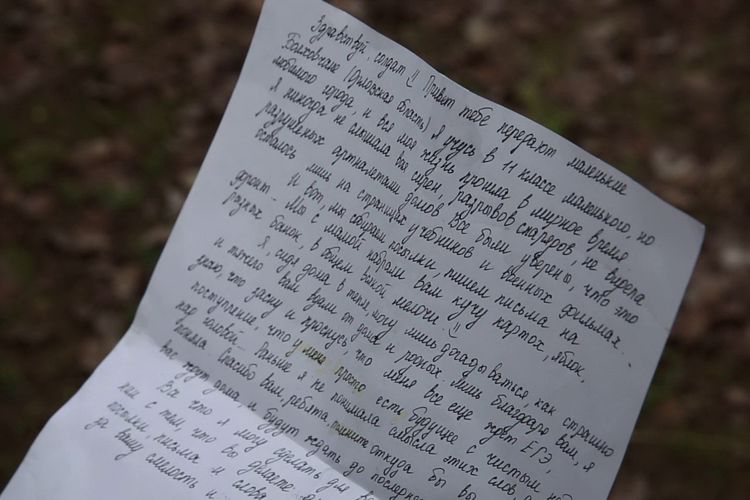 Здравствуй, солдат!! Привет тебе передают маленькие
Болховчане (Орловская область). Я учусь в 11 классе маленького, но
любимого города, и вся моя жизнь прошла в мирное время.
Я никогда не слышала вой сирен, разрывов снарядов, не видела
разрушеных артналетами домов. Все были уверены, что это
осталось лишь на страницах учебников и военных фильмах...
И вот, мы собираем посылки, пишем письма на
фронт. Мы с мамой набрали вам кучу картох, яблок,
разных банок, в общем всякой мелочи!!
Я, сидя дома в тепле, могу лишь догадываться, как страшно
и тяжело вам вдали от дома и родных. Лишь благодаря вам, я
знаю, что засну и проснусь, что меня все еще ждет ЕГЭ,
поступление, что у меня просто есть будущее с чистым
над головой. Раньше я не понимала смысла этих слов, а
поняла. Спасибо вам, ребята, помните откуда бы вы
вас ждут дома и будут ждать до последнего
Все что я могу сделать для
с тем, что вы делаете
посылки, письма и слова
за вашу смелость и